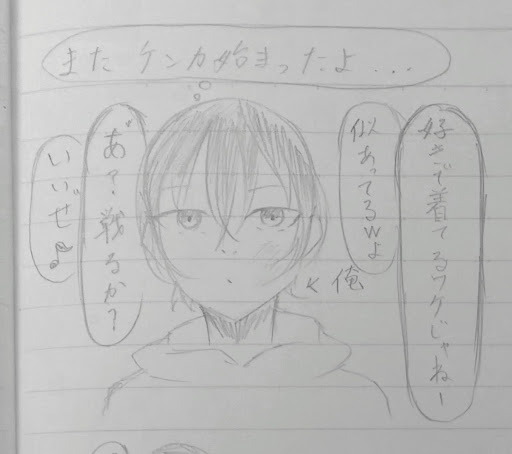 またケンカ始まったよ...
好きで着てるワケじゃねー
似あってるwよ
俺
あ゛?戦るか?
いいぜ♪